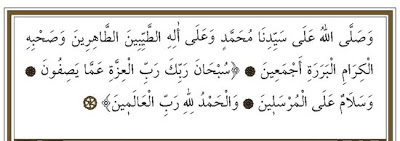 وَصَلَّى اللهُ عَلَى سَيِّدِنَا مُحَمَّدٍ وَعَلَى أٰلِهِ الطَّيِّبِينَ الطَّاهِرِينَ وَصَحْبِهِ
الْكِرَامِ الْبَرَرَةِ أَجْمَعِينَ ۞ ﴿سُبْحَانَ رَبِّكَ رَبِّ الْعِزَّةِ عَمَّا يَصِفُونَ ۞
وَسَلَامٌ عَلَى الْمُرْسَلِينَ ۞ وَالْحَمْدُ لِلهِ رَبِّ الْعَالَمِينَ﴾ ۞